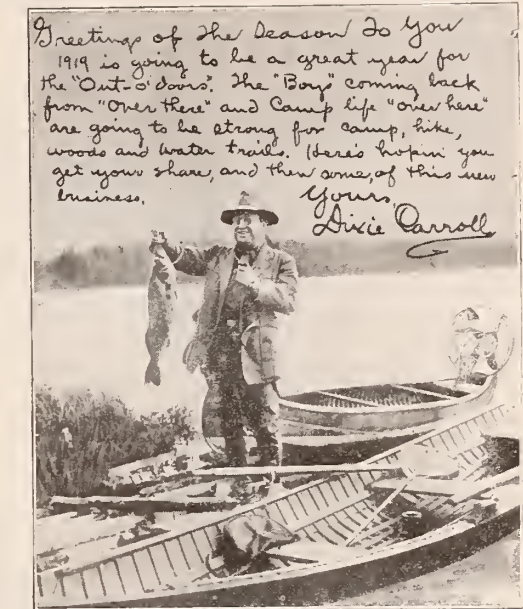 Greetings of the Season To You
1919 is going to be a great year for
the "Out-o'doors". The "Boys" coming back
from "Over There" and Camp life "over here"
are going to be strong for camp, hike,
woods and water trails. Here's hopin' you
get your share, and then some, of this new
business.
Yours,
Dixie Carroll